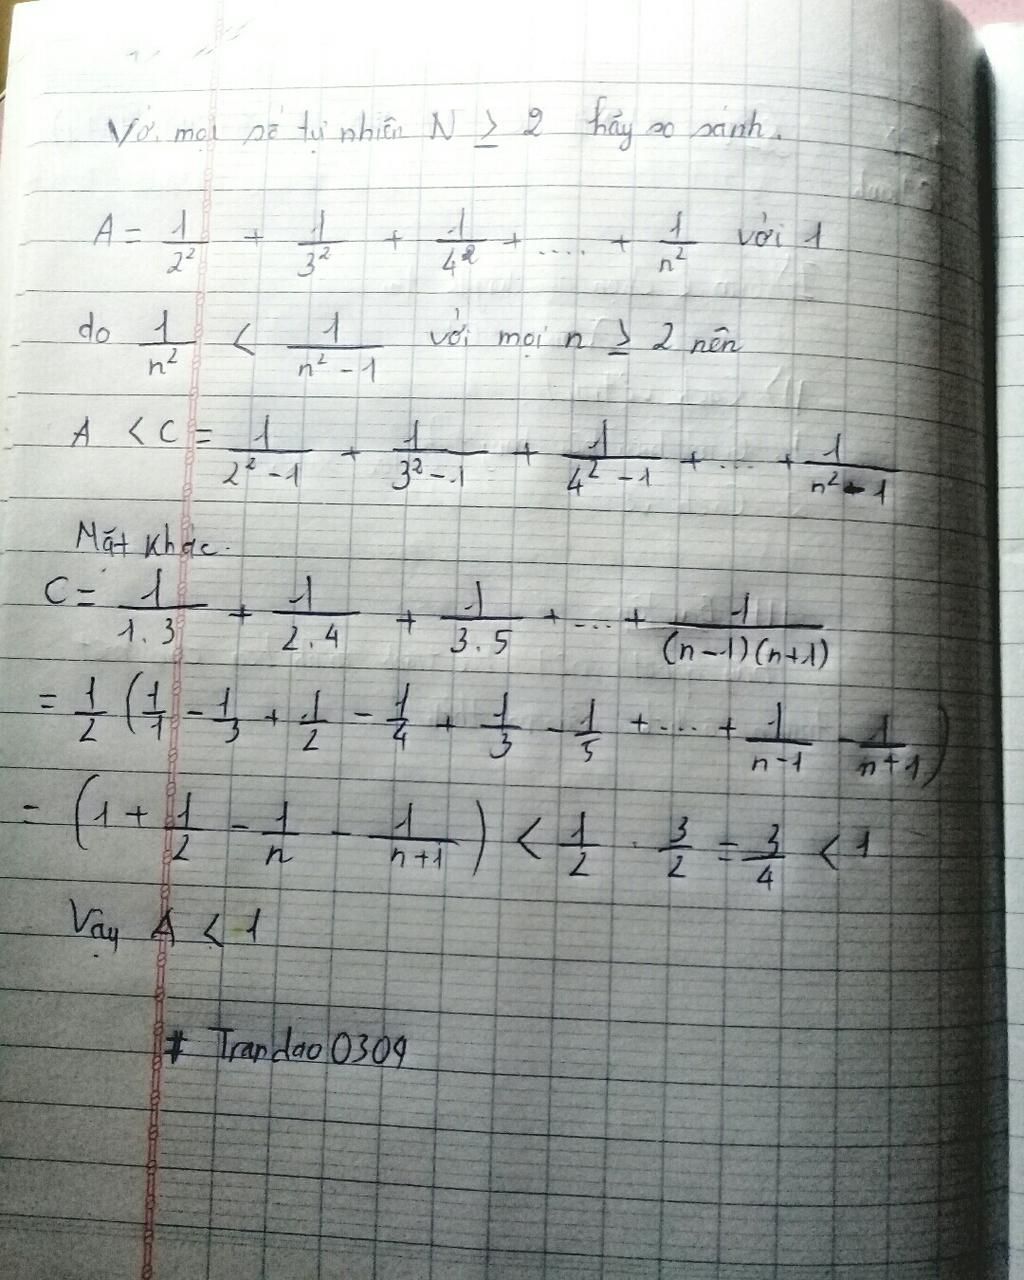 Với mọi số tự nhiên N ≥ 2 hãy so sánh.
A = 1/2² + 1/3² + 1/4² + .... + 1/n² với 1
do 1/n² < 1/(n² - 1) với mọi n ≥ 2 nên
A < C = 1/(2² - 1) + 1/(3² - 1) + 1/(4² - 1) + ... + 1/(n² - 1)
Mặt khác.
C = 1/(1.3) + 1/(2.4) + 1/(3.5) + ... + 1/((n-1)(n+1))
= 1/2 (1/1 - 1/3 + 1/2 - 1/4 + 1/3 - 1/5 + ... + 1/(n-1) - 1/(n+1))
= (1 + 1/2 - 1/n - 1/(n+1)) < 1/2 . 3/2 = 3/4 < 1
Vậy A < 1
# Trandao0309